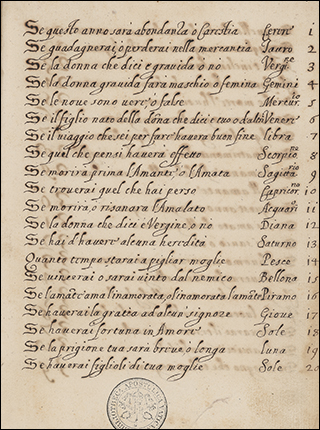 Se questo anno sara abondanza ò Carestia Cerere 1
Se guadagnerai ò perderai nella mercantia Tauro 2
Se la donna che dici e gravida ò no Vergine 3
Se la donna gravida fara maschio ò femina Gemini 4
Se le nove sono vere ò false Mercurio 5
Se il figlio nato della dõna che dici e tuo ò d'altri Venere 6
Se il viaggio che sei per fare havera buon fine libra 7
Se quel che pensi havera effetto Scorpio 8
Se morirà prima l'Amante ò l'Amata Sagitario 9
Se troverai quel che hai perso Capricorno 10
Se morirà ò risanara l'Amalato Acquario 11
Se la donna che dici è Vergine ò no Diana 12
Se hai d'havere alcuna heredità Saturno 13
Quanto tempo starai a pigliar moglie Pesce 14
Se vincerai ò sarai vinto dal nemico Bellona 15
Se l'amãte ama l'inamorata, ò l'inamorata l'amãte Piramo 16
Se haverai la gratia ad alcun signore Giove 17
Se haverai fortuna in Amore Sole 18
Se la prigione tua sarà breve ò longa luna 19
Se haverai figlioli di tua moglie Sole 20